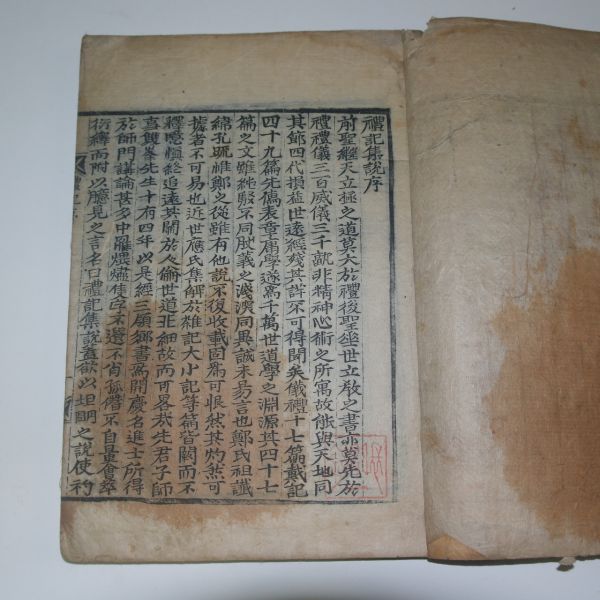 禮記集說序
前聖繼天立極之道莫大於禮後聖垂世立教之書亦莫先於
禮禮儀三百威儀三千孰非精神心術之所寓故能與天地同
其節四代損益世遠經殘其詳不可得聞矣儀禮十七篇戴記
四十九篇先儒表章庸學遂爲千萬世道學之淵源其四十七
篇之文雖純駁不同然義之淺深同異誠未易言也鄭氏祖讖
緯孔疏惟鄭之從雖有他說不復收載固爲可恨然其灼然可
據者不可易也近世應氏集解於雜記大小記等篇皆闕而不
釋噫愼終追遠其關於人倫世道非細故而可略哉先君子師
事雙峯先生十有四年以是經三領鄕書爲開慶名進士所得
於師門講論甚多中罹煨燼隻字不遺不肖孤僭不自量會萃
衍繹而附以臆見之言名曰禮記集說蓋欲以坦明之說使初